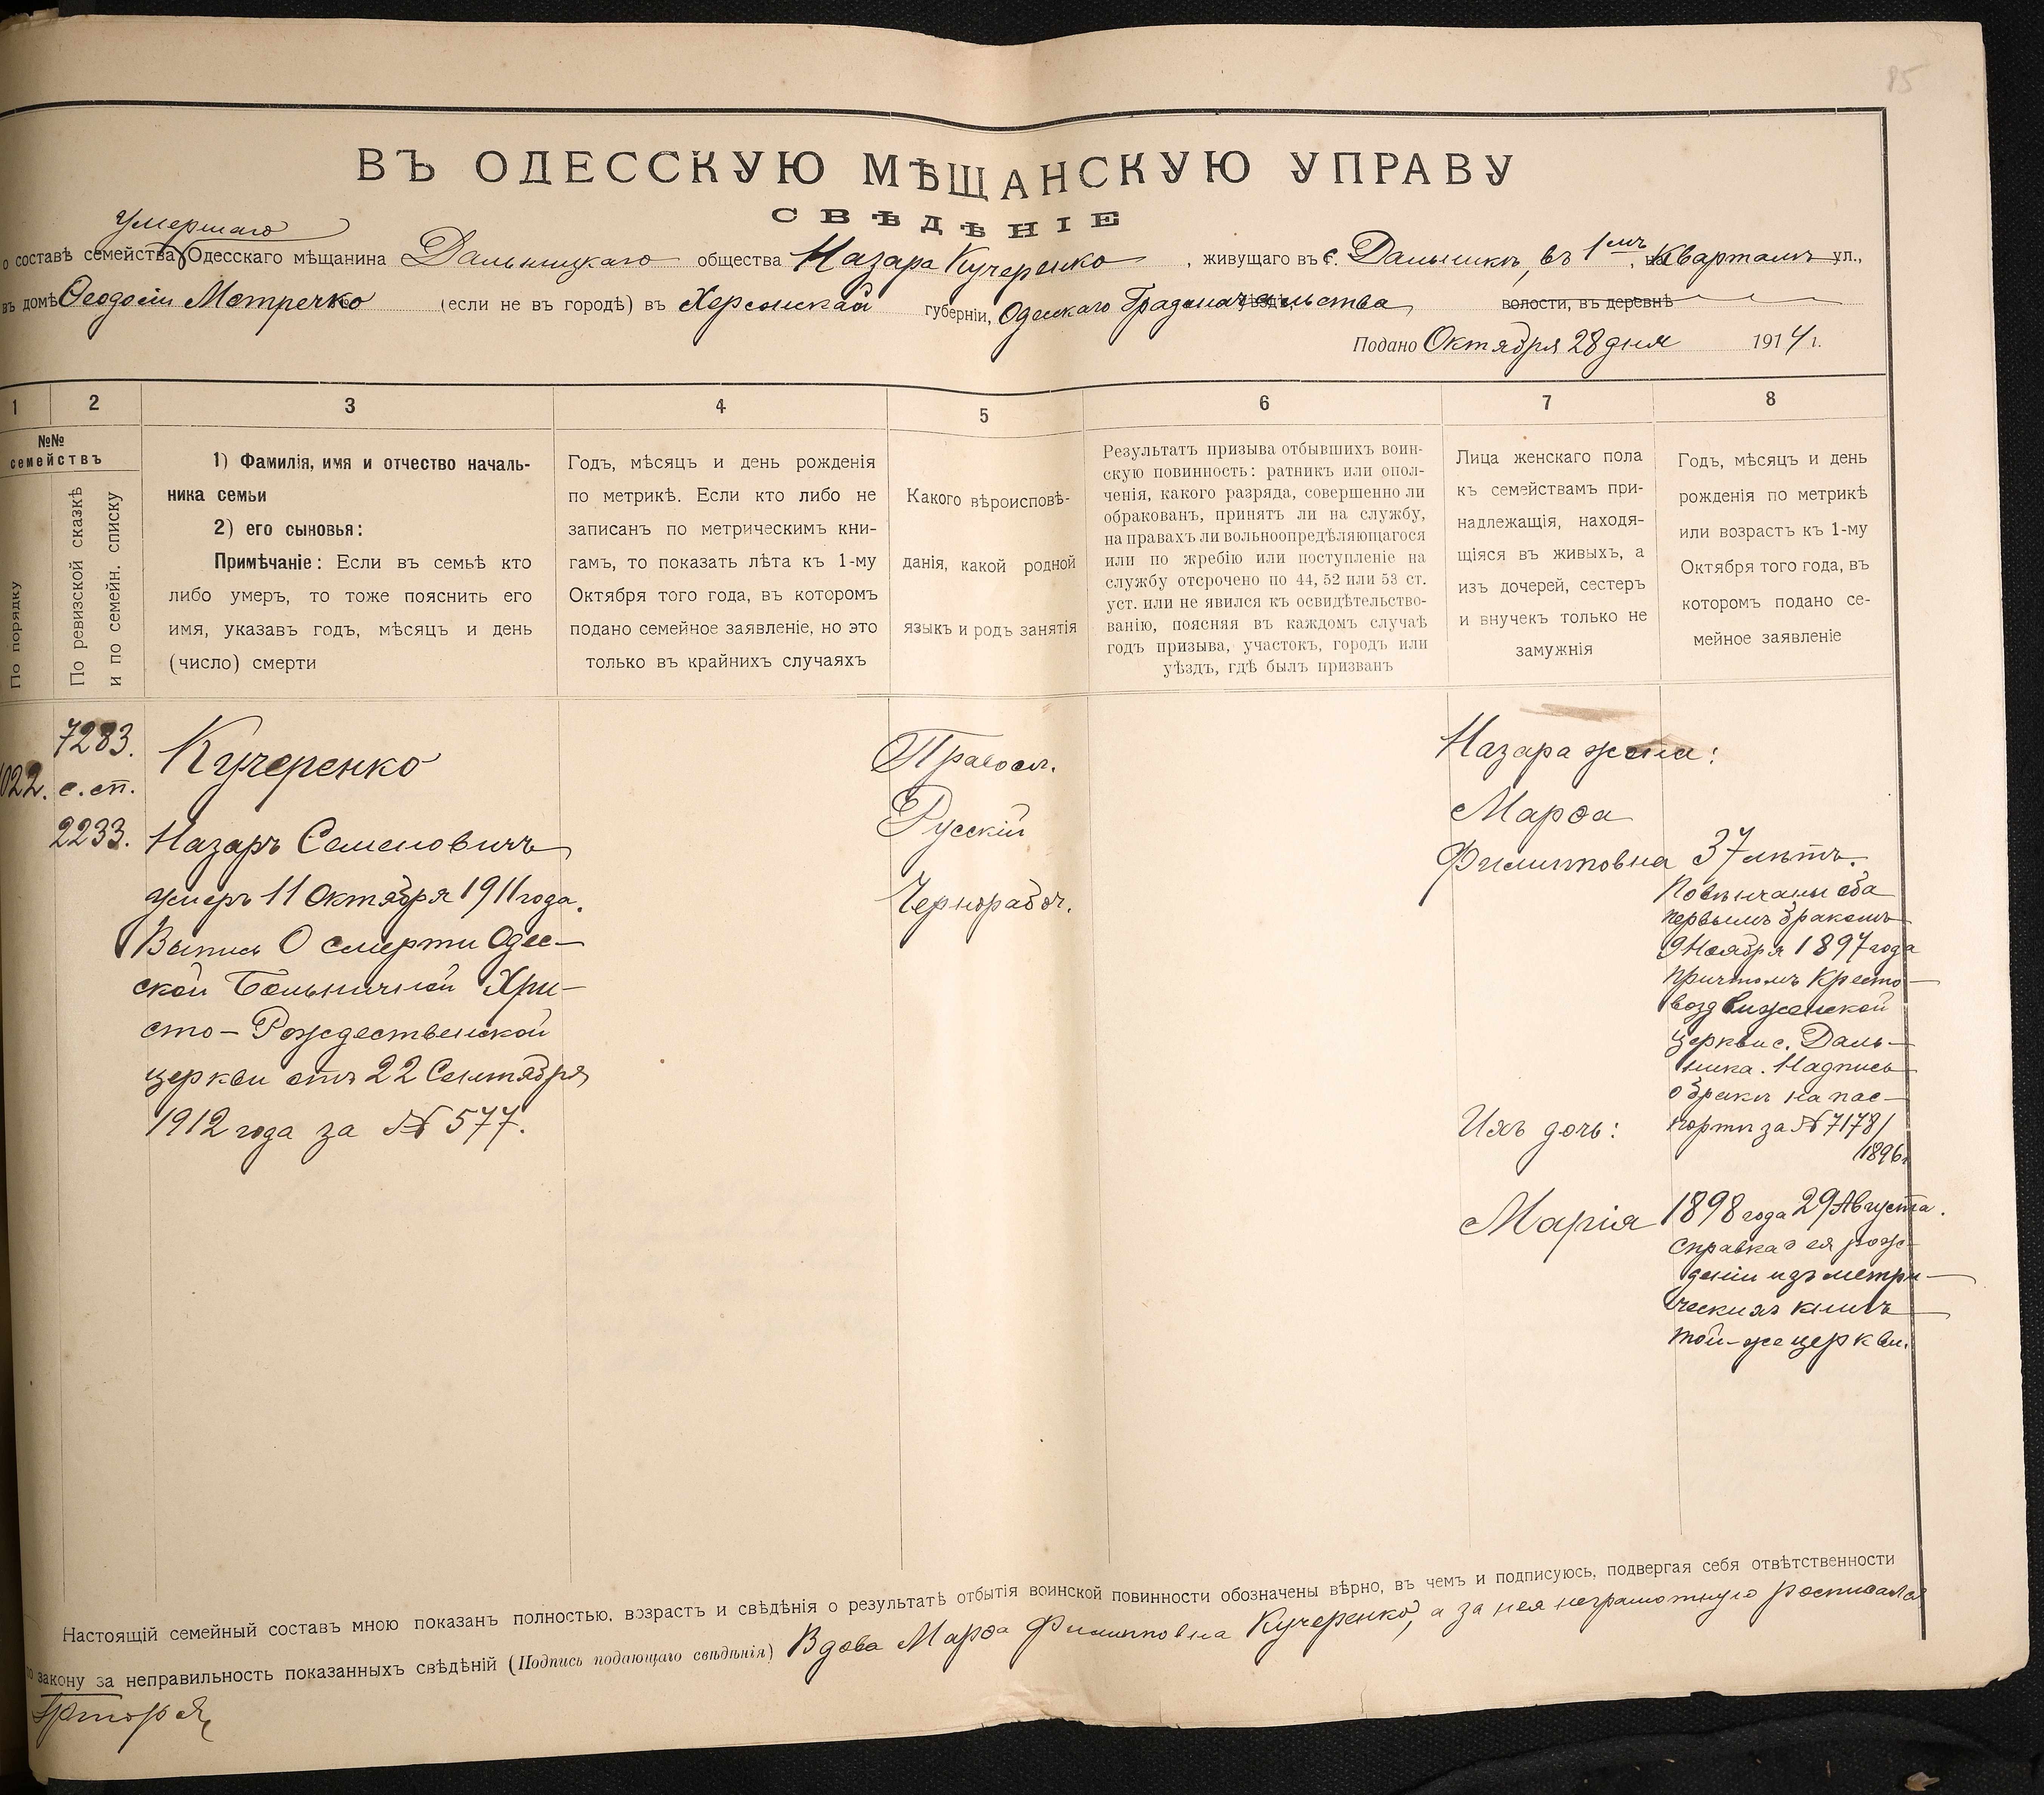 85
ВЪ ОДЕССКУЮ МѢЩАНСКУЮ УПРАВУ
СВѢДѢНІЕ
умершаго
о составѣ семейства Одесскаго мѣщанина Дальницкаго общества Назара Кучеренко, живущаго въ с. Дальникѣ, въ 1мъ, на Кварталѣ ул.,
въ домѣ Ѳеодосіи Метречко (если не въ городѣ) въ Херсонской губерніи, Одесскаго Градоначальства уѣзда, волости, въ деревнѣ
Подано Октября 28 дня 1914 г.
1 2 3 4 5 6 7 8
№№
семействъ
По порядку
По ревизской сказкѣ
и по семейн. списку
1) Фамилія, имя и отчество началь-
ника семьи
2) его сыновья:
Примѣчаніе: Если въ семьѣ кто
либо умеръ, то тоже пояснить его
имя, указавъ годъ, мѣсяцъ и день
(число) смерти
Годъ, мѣсяцъ и день рожденія
по метрикѣ. Если кто либо не
записанъ по метрическимъ кни-
гамъ, то показать лѣта къ 1-му
Октября того года, въ которомъ
подано семейное заявленіе, но это
только въ крайнихъ случаяхъ
Какого вѣроисповѣ-
данія, какой родной
языкъ и родъ занятія
Результатъ призыва отбывшихъ воин-
скую повинность: ратникъ или опол-
ченія, какого разряда, совершенно ли
обракованъ, принятъ ли на службу,
на правахъ ли вольноопредѣляющагося
или по жребію или поступленіе на
службу отсрочено по 44, 52 или 53 ст.
уст. или не явился къ освидѣтельство-
ванію, поясняя въ каждомъ случаѣ
годъ призыва, участокъ, городъ или
уѣздъ, гдѣ былъ призванъ
Лица женскаго пола
къ семействамъ при-
надлежащія, находя-
щіяся въ живыхъ, а
изъ дочерей, сестеръ
и внучекъ только не
замужнія
Годъ, мѣсяцъ и день
рожденія по метрикѣ
или возрастъ къ 1-му
Октября того года, въ
которомъ подано се-
мейное заявленіе
1022.
7283.
с.сп.
2233.
Кучеренко
Назаръ Семеновичъ
умеръ 11 Октября 1911 года.
Выпись о смерти Одес-
ской Больничной Хри-
сто-Рождественской
церкви отъ 22 Сентября
1912 года за № 577.
Правосл.
Русскій
Чернорабоч.
Назара жена:
Марѳа
Филипповна
Ихъ дочь:
Марія
37 лѣтъ.
Повѣнчаны оба
первымъ бракомъ
9 Ноября 1897 года
причтомъ Кресто-
воздвиженской
церкви с. Даль-
ника. Надпись
о бракѣ на пас-
портѣ за № 7178/
1896 г.
1898 года 29 Августа.
Справка о ея рож-
деніи изъ метри-
ческихъ книгъ
той-же церкви.
Настоящій семейный составъ мною показанъ полностью, возрастъ и свѣдѣнія о результатѣ отбытія воинской повинности обозначены вѣрно, въ чемъ и подписуюсь, подвергая себя отвѣтственности
по закону за неправильность показанныхъ свѣдѣній (Подпись подающаго свѣдѣнія) Вдова Марѳа Филипповна Кучеренко, а за нея неграмотную росписался